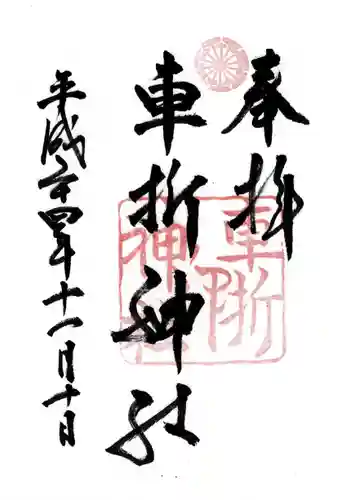 奉拝
車折神社
平成二十四年十一月十日
車折
神社